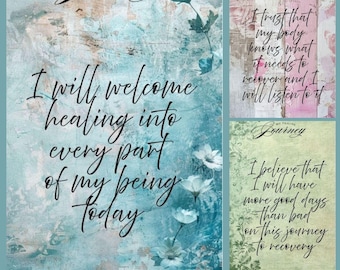 I will welcome
healing into
every part
of my being
today.
I trust that
my body
knows what
it needs to
recover and I
will listen to it
Journey
I believe that
I will have
more good days
than bad
on this journey
to recovery